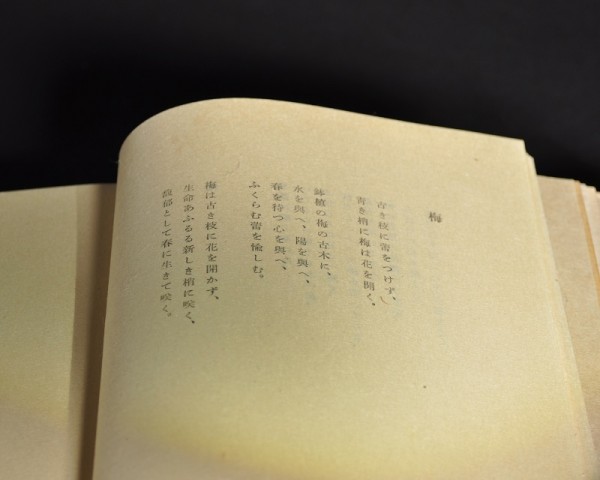 梅
古き枝に蕾をつけず、
青き梢に梅は花を開く、
鉢植の梅の古木に、
水を與へ、陽を與へ、
春を待つ心を與へ、
ふくらむ蕾を愉しむ。
梅は古き枝に花を開かず、
生命あふるる新しき梢に咲く、
馥郁として春に生きて咲く。